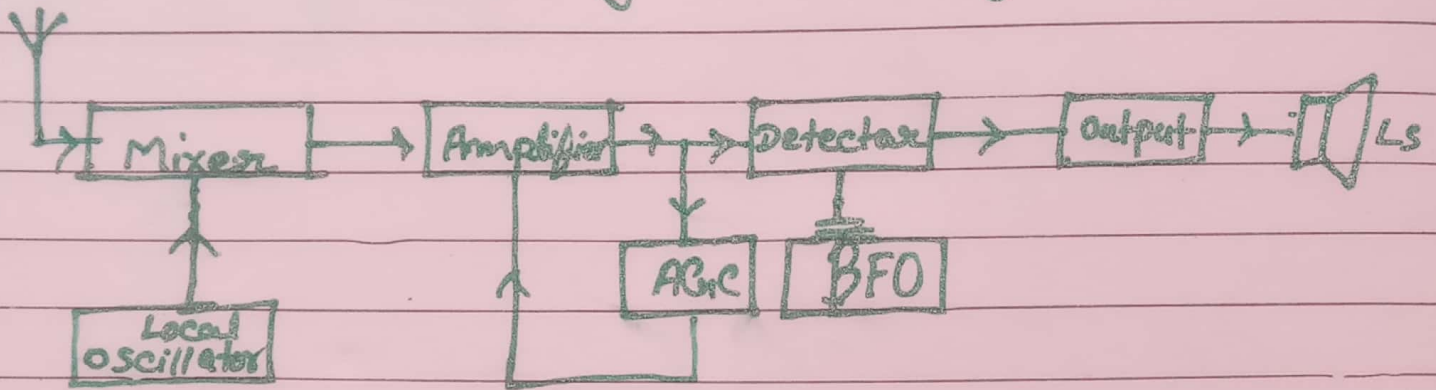 Mixer
Amplifier
Detector
output
Ls
AGC
BFO
Local
oscillator